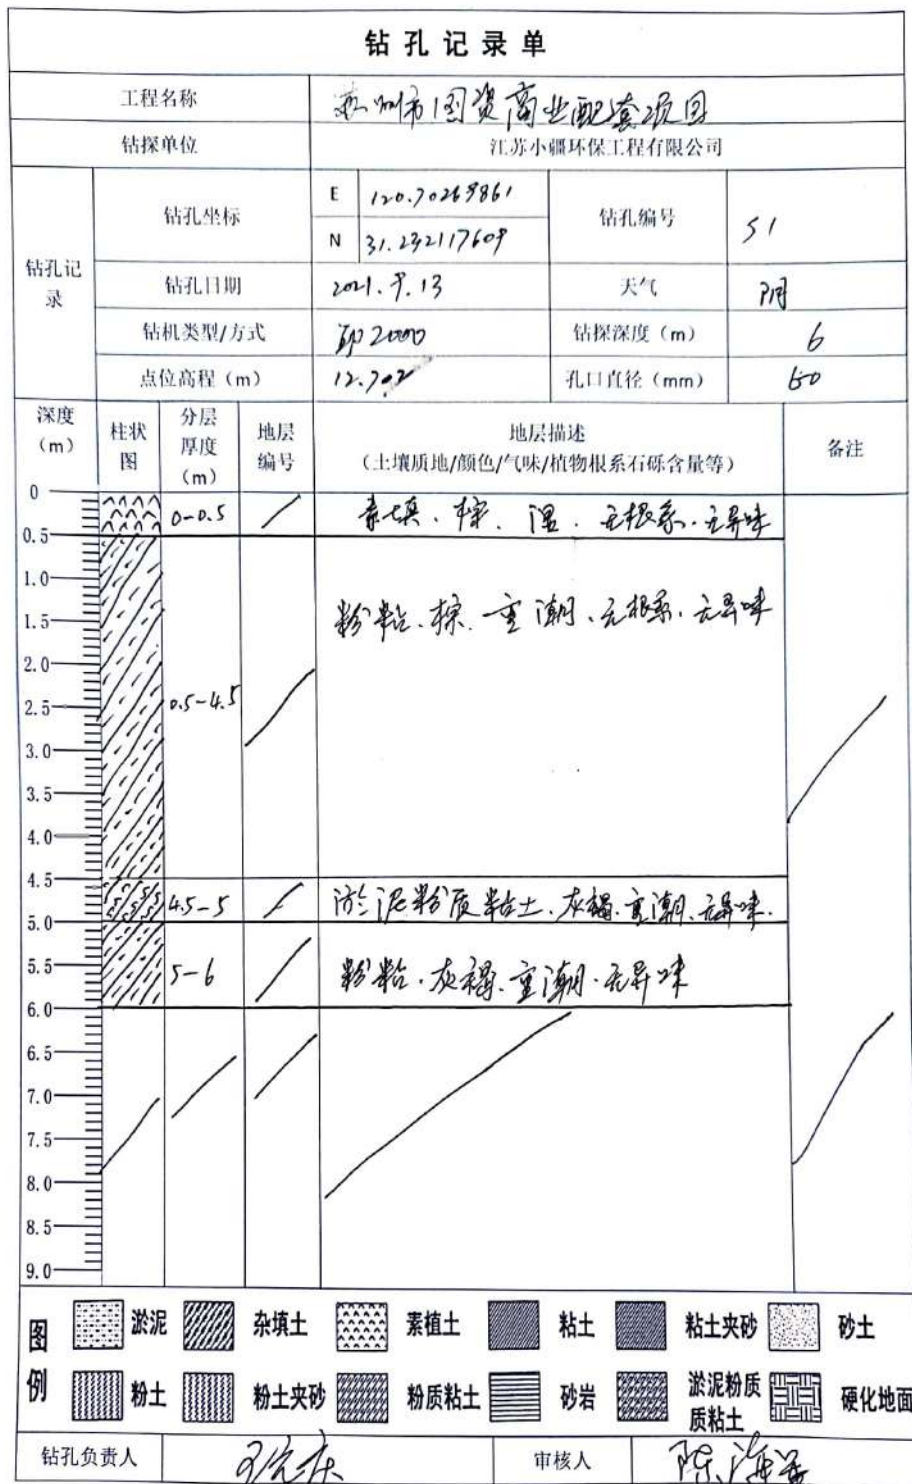 钻孔记录单
工程名称 苏州市国资商业配套项目
钻探单位 江苏小疆环保工程有限公司
钻孔记录
钻孔坐标 E 120.70269861 钻孔编号 S1
N 31.232117609
钻孔日期 2021.9.13 天气 阴
钻机类型/方式 2000 钻探深度(m) 6
点位高程(m) 12.702 孔口直径(mm) 60
深度(m) 柱状图 分层厚度(m) 地层编号 地层描述 备注
(土壤质地/颜色/气味/植物根系石砾含量等)
0
0-0.5 素填、棕、湿、无根系、无异味
0.5
1.0
粉粘、棕、重潮、无根系、无异味
1.5
2.0
2.5 0.5-4.5
3.0
3.5
4.0
4.5
4.5-5 淤泥粉质粘土、灰褐、重潮、无异味.
5.0
5.5 5-6 粉粘、灰褐、重潮、无异味
6.0
6.5
7.0
7.5
8.0
8.5
9.0
图例
淤泥 杂填土 素植土 粘土 粘土夹砂 砂土
粉土 粉土夹砂 粉质粘土 砂岩 淤泥粉质质粘土 硬化地面
钻孔负责人 审核人